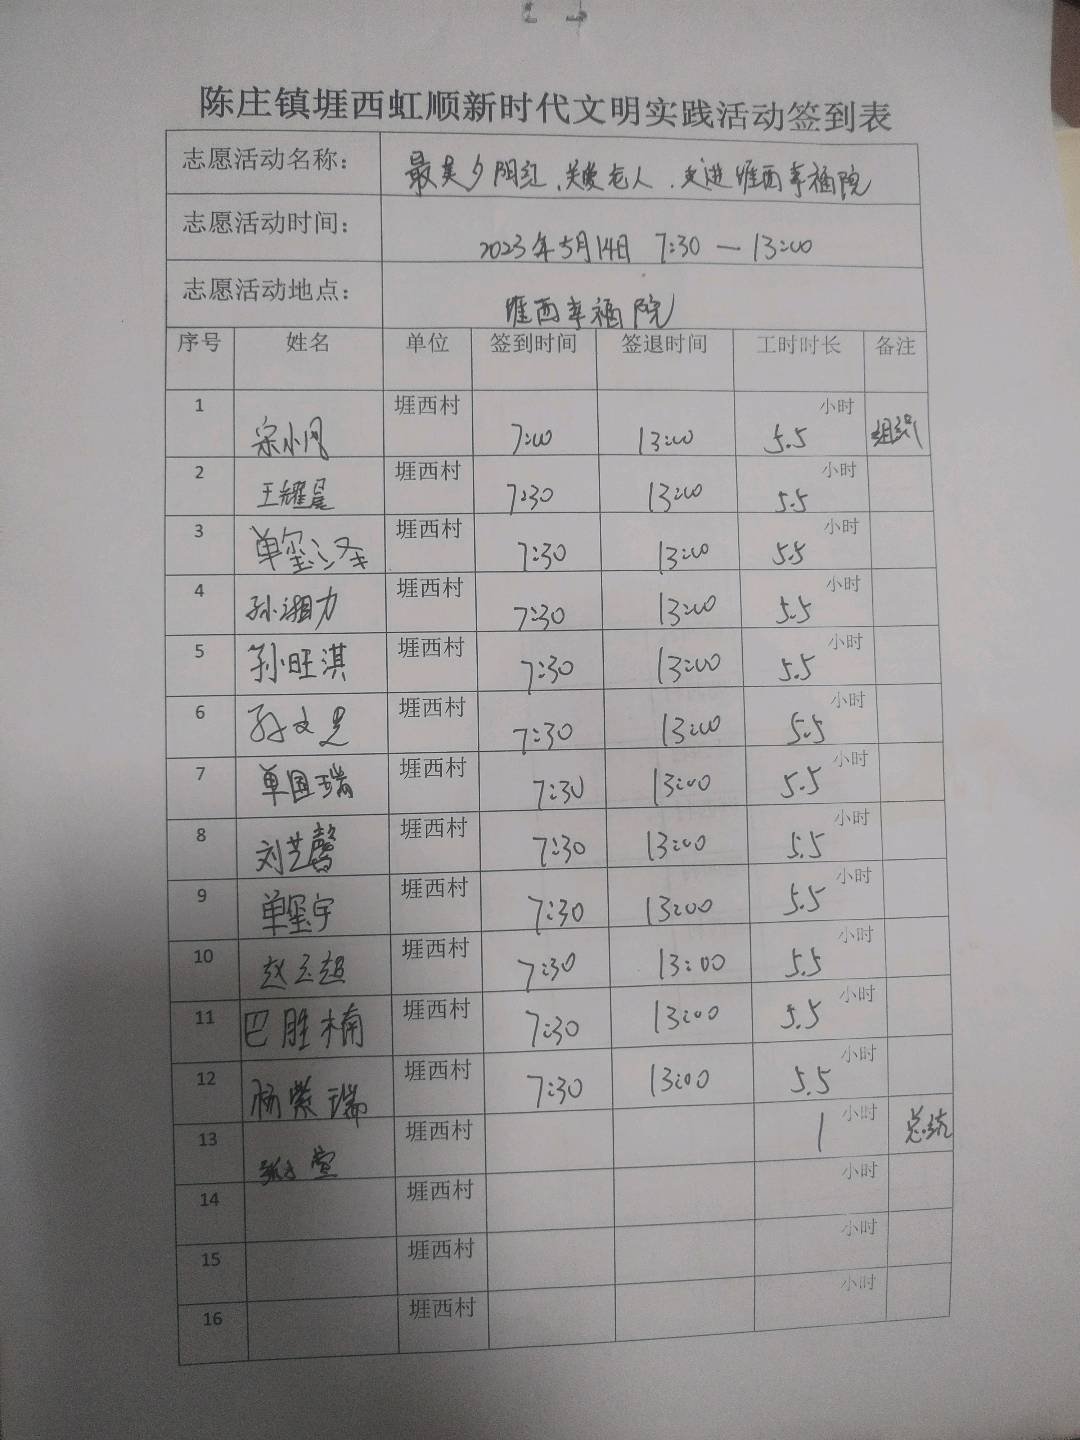 陈庄镇堐西虹顺新时代文明实践活动签到表
志愿活动名称： 最美夕阳红、关爱老人、走进堐西幸福院
志愿活动时间： 2023年5月14日 7:30 — 13:00
志愿活动地点： 堐西幸福院
序号 姓名 单位 签到时间 签退时间 工时时长 备注
1 宋小月 堐西村 7:00 13:00 5.5 小时 组织
2 王耀晨 堐西村 7:30 13:00 5.5 小时
3 单玺泽 堐西村 7:30 13:00 5.5 小时
4 孙湘力 堐西村 7:30 13:00 5.5 小时
5 孙旺淇 堐西村 7:30 13:00 5.5 小时
6 孙文 堐西村 7:30 13:00 5.5 小时
7 单国瑞 堐西村 7:30 13:00 5.5 小时
8 刘艺馨 堐西村 7:30 13:00 5.5 小时
9 单玺宇 堐西村 7:30 13:00 5.5 小时
10 赵 超 堐西村 7:30 13:00 5.5 小时
11 巴胜楠 堐西村 7:30 13:00 5.5 小时
12 杨紫瑞 堐西村 7:30 13:00 5.5 小时
13 堐西村 1 小时
14 堐西村 小时
15 堐西村 小时
16 堐西村 小时